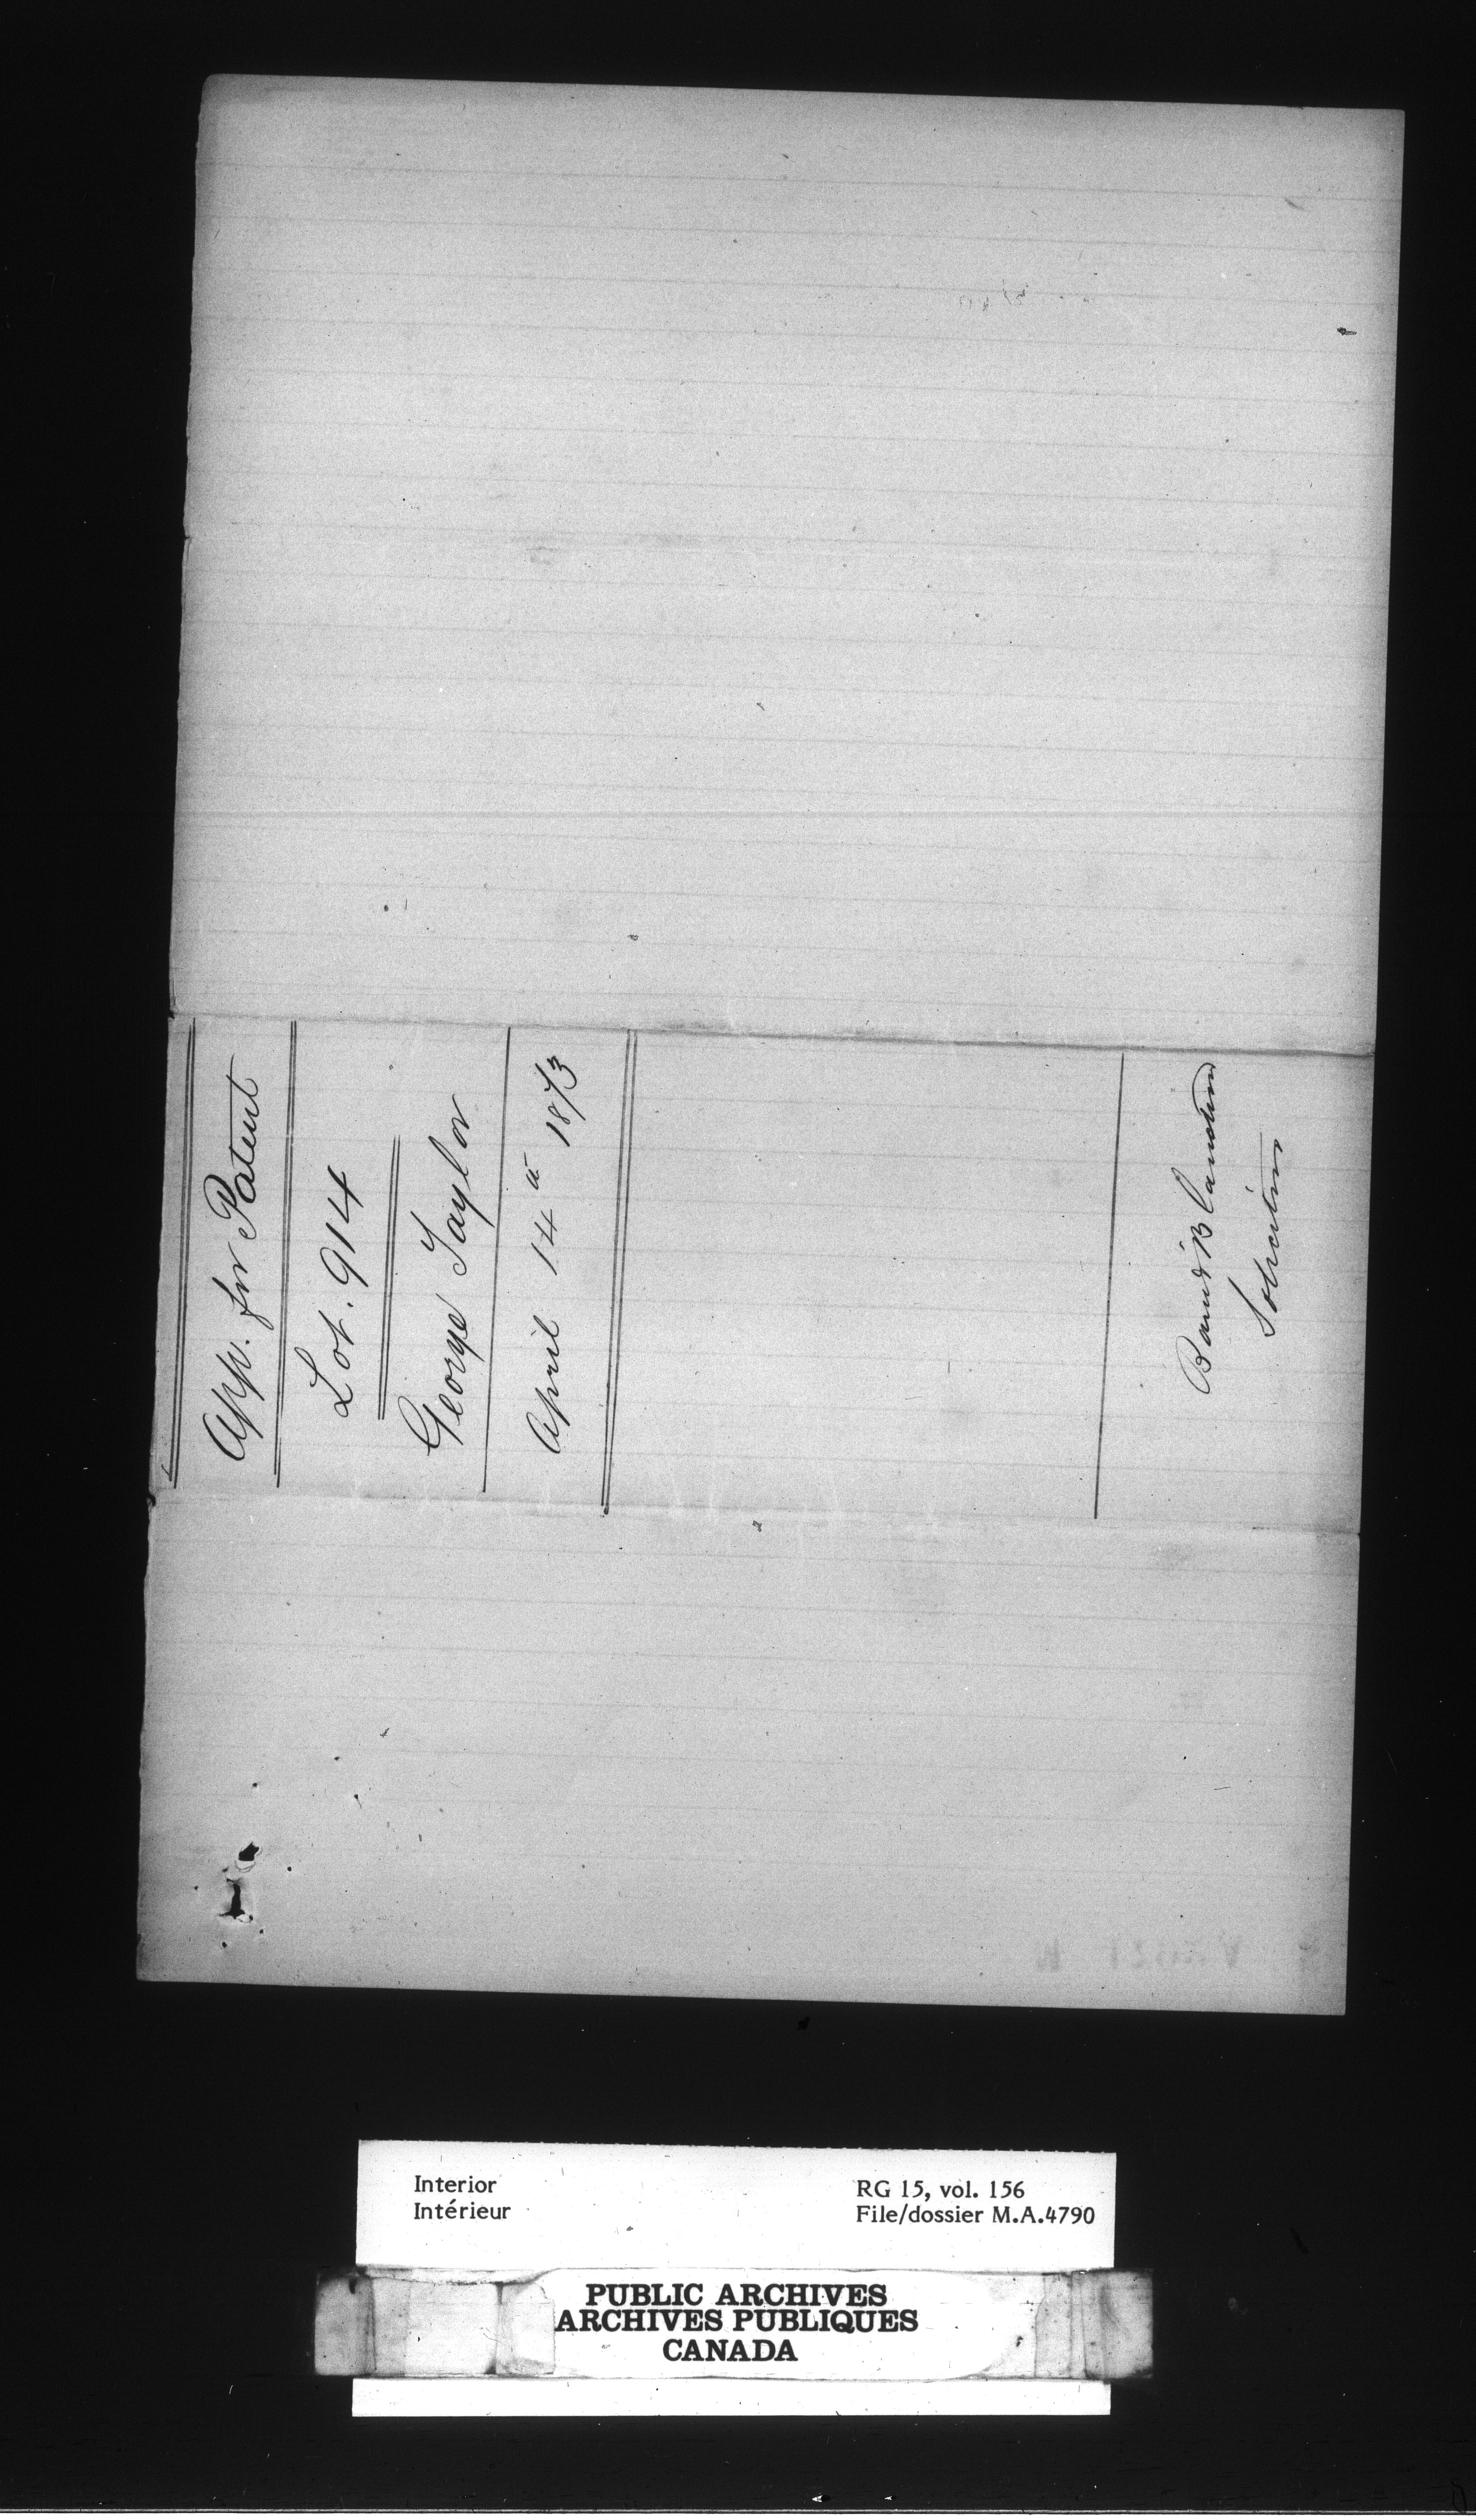 App. for Patent
Lot. 914
George Taylor
April 14 1873
Solicitors
Interior
Intérieur
RG 15, vol. 156
File/dossier M.A.4790
PUBLIC ARCHIVES
ARCHIVES PUBLIQUES
CANADA